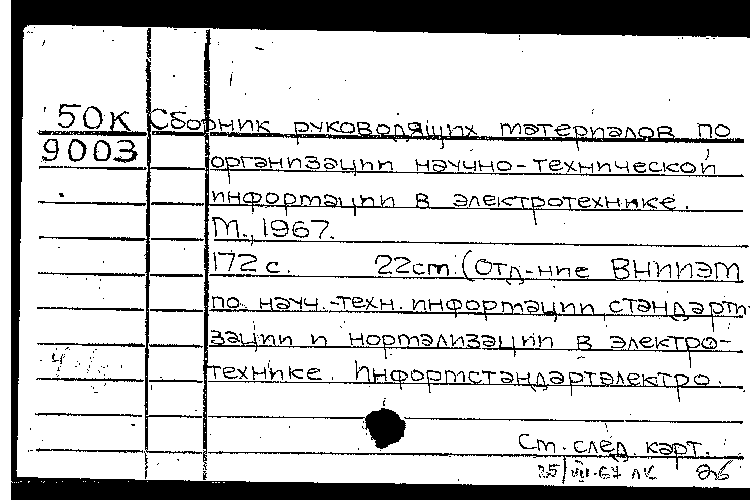 50К Сборник руководящих материалов по
9003 организации научно-технической
информации в электротехнике.
М., 1967.
172 с. 22см. (Отд-ние ВНИИЭМ
по науч.-техн. информации, стандарти
зации и нормализации в электро-
технике. Информстандартэлектро.
См. след. карт.
25/VII-67 ЛК